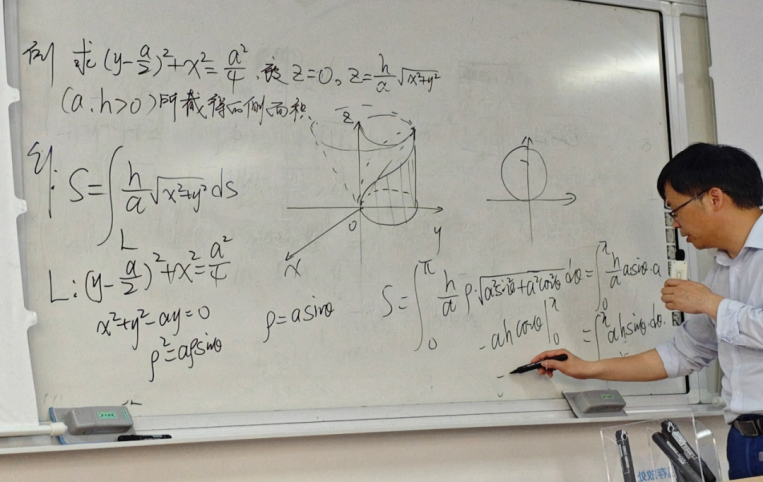 例 求 (y-a/2)²+x²=a²/4 被 z=0, z=h/a √(x²+y²)
(a.h>0)所截得的侧面积.
S=∫_L h/a √(x²+y²) ds
L: (y-a/2)²+x²=a²/4
x²+y²-ay=0
ρ²=aρsinθ
ρ=asinθ
z
0
y
x
S=∫_0^π h/a ρ·√(a²sin²θ+a²cos²θ) dθ=∫_0^π h/a asinθ·a
-ahcosθ|_0^π =∫_0^π ahsinθ.dθ.
=